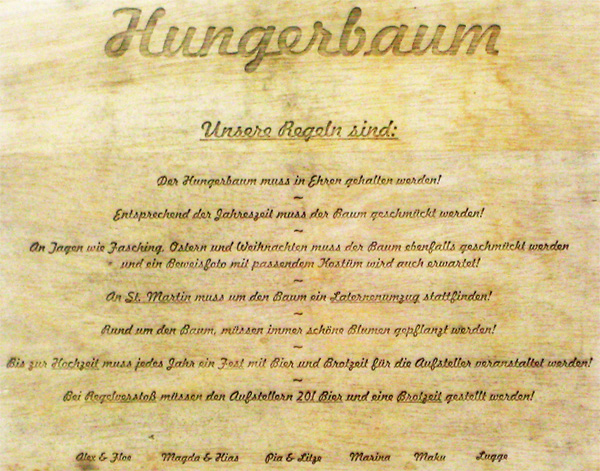 Hungerbaum
Unsere Regeln sind:
Der Hungerbaum muss in Ehren gehalten werden!
~
Entsprechend der Jahreszeit muss der Baum geschmückt werden!
~
An Tagen wie Fasching, Ostern und Weihnachten muss der Baum ebenfalls geschmückt werden
und ein Beweisfoto mit passendem Kostüm wird auch erwartet!
~
An St. Martin muss um den Baum ein Laternenumzug stattfinden!
~
Rund um den Baum, müssen immer schöne Blumen gepflanzt werden!
~
Bis zur Hochzeit muss jedes Jahr ein Fest mit Bier und Brotzeit für die Aufsteller veranstaltet werden!
~
Bei Regelverstoß müssen den Aufstellern 20l Bier und eine Brotzeit gestellt werden!
Alex & Floe Magda & Hias Pia & Litze Marina Maku Lugge